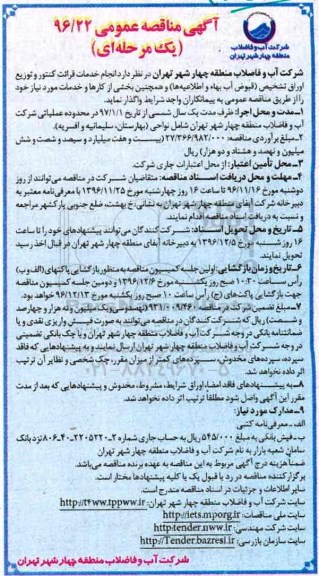 آگهی مناقصه عمومی ۹۶/۲۲
(یک مرحله‌ای)
شرکت آب و فاضلاب
منطقه چهار شهر تهران
شرکت آب و فاضلاب منطقه چهار شهر تهران در نظر دارد انجام خدمات قرائت کنتور و توزیع
اوراق تشخیص (قبوض آب بهاء و اطلاعیه‌ها) و همچنین بخشی از کارها و خدمات مورد نیاز خود
را از طریق مناقصه عمومی به پیمانکاران واجد شرایط واگذار نماید.
۱-مدت و محل اجرا: ظرف مدت یک سال شمسی از تاریخ ۹۷/۱/۱ در محدوده عملیاتی شرکت
آب و فاضلاب منطقه چهار شهر تهران شامل نواحی (بهارستان، سلیمانیه و افسریه).
۲-مبلغ برآوردی مناقصه: ۲۷/۳۶۶/۹۸۲/۰۰۰ (بیست و هفت میلیارد و سیصد و شصت و شش
میلیون و نهصد و هشتاد و دو هزار) ریال
۳-محل تأمین اعتبار: از محل اعتبارات جاری شرکت.
۴-مهلت و محل دریافت اسناد مناقصه: متقاضیان شرکت در مناقصه می‌توانند از روز
دوشنبه مورخ ۹۶/۱۱/۱۶ تا ساعت ۱۶ روز چهارشنبه مورخ ۱۳۹۶/۱۱/۲۵ با معرفی‌نامه معتبر به
دبیرخانه شرکت آبفای منطقه چهار شهر تهران به نشانی: خ بهشت، ضلع جنوبی پارکشهر مراجعه
و نسبت به دریافت اسناد مناقصه اقدام نمایند.
۵-تاریخ و محل تحویل اسناد: شرکت‌کنندگان می‌توانند پیشنهادهای خود را تا ساعت
۱۶ روز شنبه مورخ ۱۳۹۶/۱۲/۵ به دبیرخانه آبفای منطقه چهار شهر تهران در قبال اخذ رسید
تحویل نمایند.
۶-تاریخ و زمان بازگشایی: اولین جلسه کمیسیون مناقصه به منظور بازگشایی پاکتهای (الف و ب)
رأس ساعت ۱۰:۳۰ صبح روز یکشنبه مورخ ۱۳۹۶/۱۲/۶ و دومین جلسه کمیسیون مناقصه
جهت بازگشایی پاکت‌های (ج) رأس ساعت ۱۰ صبح روز یکشنبه مورخ ۱۳۹۶/۱۲/۱۳ خواهد بود.
۷-مبلغ تضمین شرکت در مناقصه: ۹۳۱/۰۰۹/۴۶۰ (نهصد و سی و یک میلیون و نه هزار و چهارصد
و شصت) ریال که شرکت‌کنندگان در مناقصه می‌توانند به صورت فیش واریزی نقدی و یا
ضمانتنامه بانکی در وجه شرکت آب و فاضلاب منطقه چهار شهر تهران و یا چک بانکی تضمینی
در وجه شرکت آب و فاضلاب منطقه چهار شهر تهران ارسال نمایند و به پیشنهادهایی که فاقد
سپرده، سپرده‌های مخدوش، سپرده‌های کمتر از میزان مقرر، چک شخصی و نظایر آن ترتیب
اثر داده نخواهد شد.
۸-به پیشنهادهای فاقد امضاء اوراق شرایط، مشروط، مخدوش و پیشنهادهایی که بعد از مدت
مقرر این آگهی واصل شود مطلقا ترتیب اثر داده نخواهد شد.
۹-مدارک مورد نیاز:
الف - معرفی‌نامه کتبی
ب - فیش بانکی به مبلغ ۵۴۵/۰۰۰ ریال به حساب جاری شماره ۲-۲۲۰۵۲۲۰-۴۰-۸۰۶ نزد بانک
سامان شعبه بازار به نام شرکت آب و فاضلاب منطقه چهار شهر تهران
ضمناً هزینه درج آگهی مربوط به این مناقصه به عهده برنده مناقصه می‌باشد.
برگزارکننده مناقصه در رد یا قبول یک یا کلیه پیشنهادها مختار است.
سایر اطلاعات و جزئیات در اسناد مناقصه مندرج است.
سایت شرکت آب و فاضلاب منطقه چهار شهر تهران: http://t4ww.tppww.ir
سایت ملی مناقصات: http//iets.mporg.ir
سایت شرکت مهندسی: http:tender.nww.ir
سایت سازمان بازرسی: http//Tender.bazresi.ir
شرکت آب و فاضلاب منطقه چهار شهر تهران